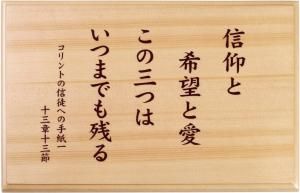 信仰と
希望と愛
この三つは
いつまでも残る
コリントの信徒への手紙一
十三章十三節